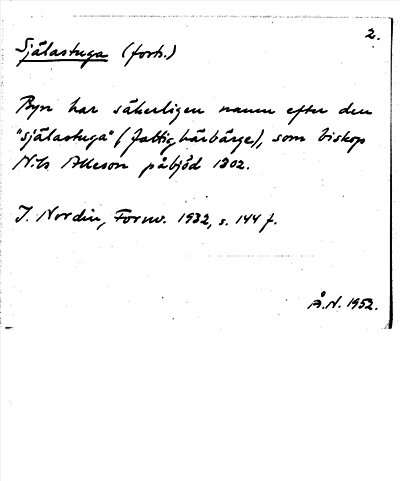 2.
Själastuga (forts.)
Byn har säkerligen namn efter den
"själastuga" (fattighärbärge), som biskop
Nils Alleson påbjöd 1302.
J. Nordin, Fornv. 1932, s. 144 f.
Å.N. 1952.